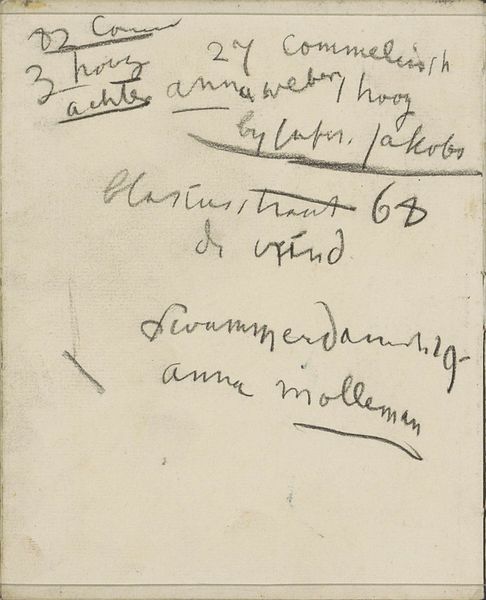 82 Comm
3 hoog
achter
27 Commelinsh
anna weber, hoog
by Jufr. Jakobs
blasiusstraat 68
de vriend
Swammerdamstr 19
anna molleman